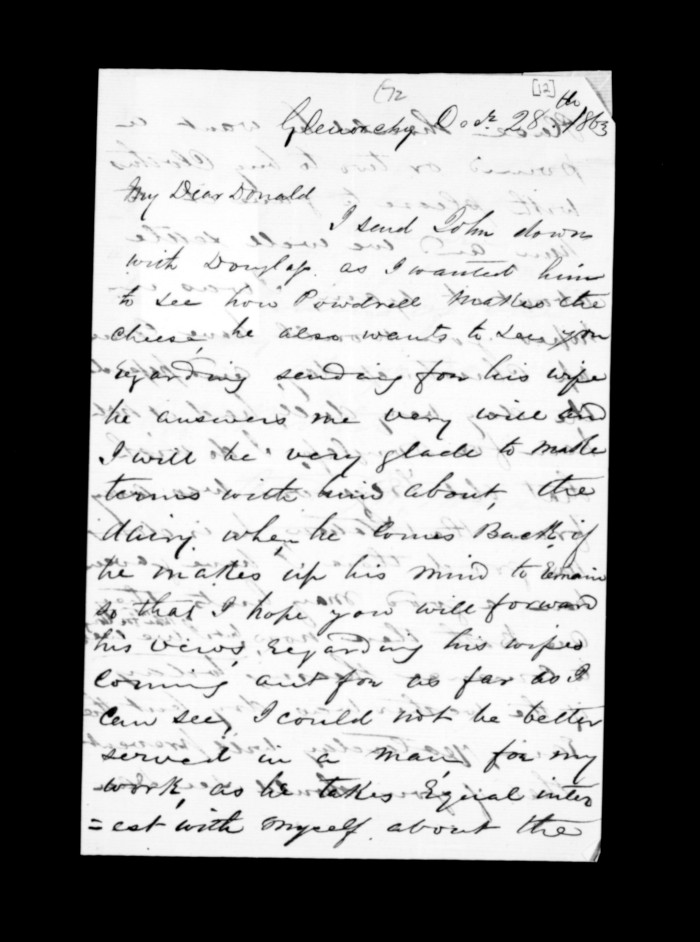 72 [12]
Glenorchy Decr. 28th /1863
My Dear Donald
I send John down
with Douglas. as I wanted him
to see how Powdrell Makes the
cheese, he also wants to see you
regarding sending for his wife
he answers me very well and
I will be very glad to make
terms with him about, the
dairy. when he comes Back, if
he makes up his mind to remain
so that I hope you will forward
his views, regarding his wifes
coming out for as far as I
can see, I could not be better
served in a man, for my
work, as he takes Equal inter
=est with myself. about the